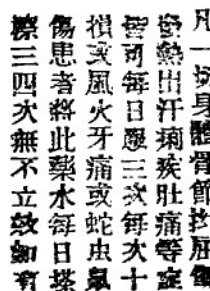 凡一切身體骨節找屈傷
發熱出汗痢疾肚痛等症
皆可每日服三次每次十
損或風火牙痛或蛇虫鼠
傷患者將此藥水每日搽
擦三四次無不立效如有